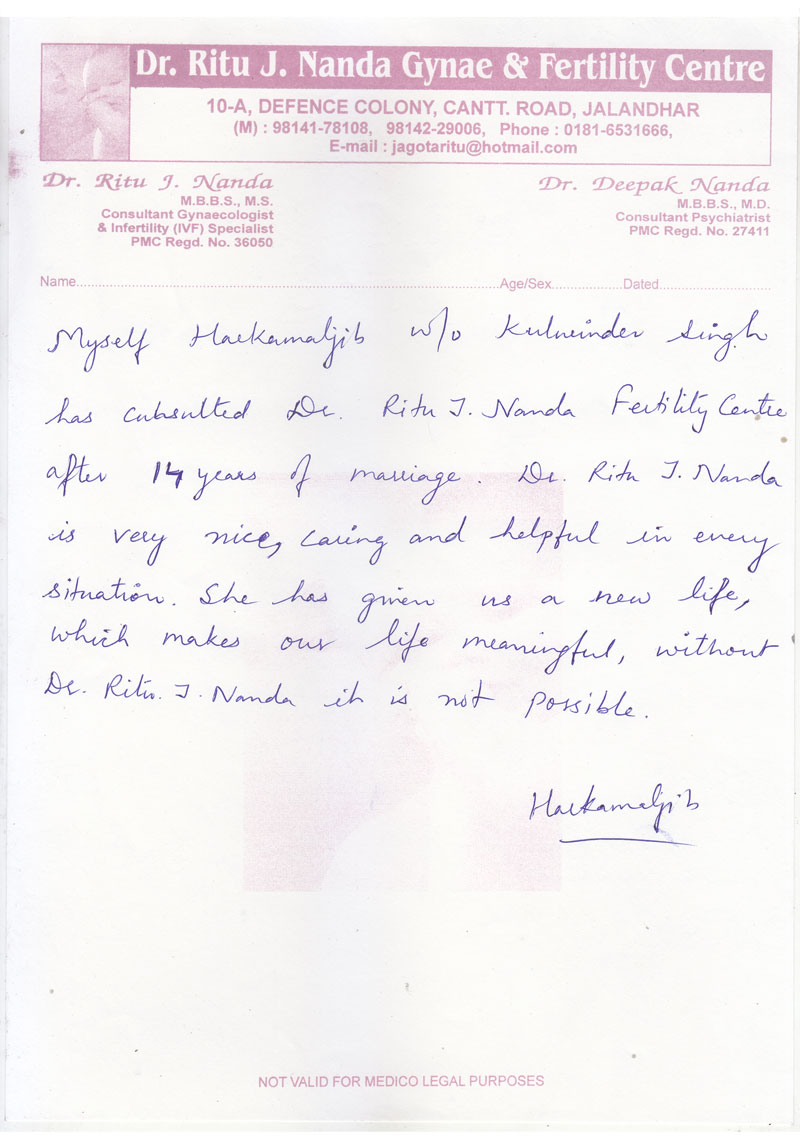 Dr. Ritu J. Nanda Gynae & Fertility Centre
10-A, DEFENCE COLONY, CANTT. ROAD, JALANDHAR
(M) : 98141-78108, 98142-29006, Phone : 0181-6531666,
E-mail : jagotaritu@hotmail.com
Dr. Ritu J. Nanda
M.B.B.S., M.S.
Consultant Gynaecologist
& Infertility (IVF) Specialist
PMC Regd. No. 36050
Dr. Deepak Nanda
M.B.B.S., M.D.
Consultant Psychiatrist
PMC Regd. No. 27411
Name Age/Sex Dated
Myself Harkamaljit w/o Kulwinder Singh
has cubsulted Dr. Ritu J. Nanda Fertility Centre
after 14 years of marriage. Dr. Ritu J. Nanda
is very nice, caring and helpful in every
situation. She has given us a new life,
which makes our life meaningful, without
Dr. Ritu. J. Nanda it is not possible.
Harkamaljit
NOT VALID FOR MEDICO LEGAL PURPOSES